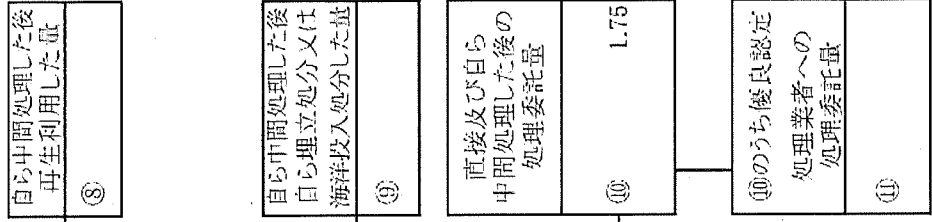 自ら中間処理した後
再生利用した量
⑧
自ら中間処理した後
自ら埋立処分又は
海洋投入処分した量
⑨
直接及び自ら
中間処理した後の
処理委託量
⑩
1.75
⑩のうち優良認定
処理業者への
処理委託量
⑪